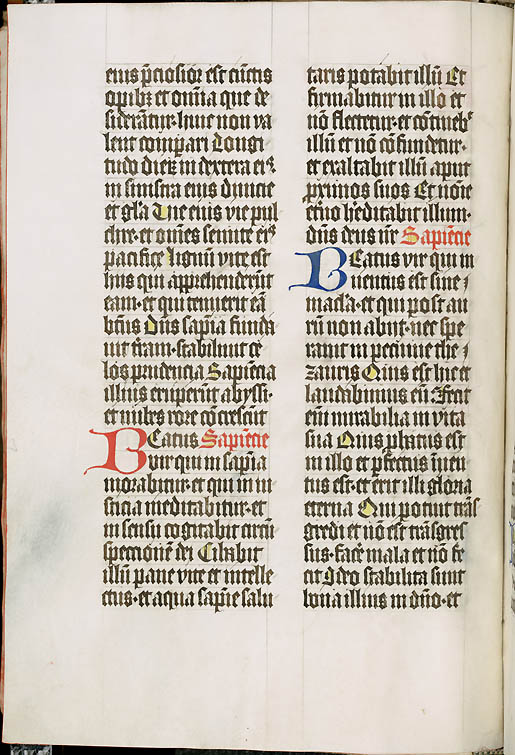 eius p̄ciosior est cūctis
opibꝫ et om̄ia que de
siderātur huic non va
lent comparī Longi
tudo dieꝝ in dextera eiꝰ
in sinistra eius diuicie
et gl̄a Uie eius vie pul
chre et om̄es semite eiꝰ
pacifice Lignū vite est
hiis qui apprehenderīt
eam et qui tenuerit eā
btūs Dn̄s sapīa funda
uit t̄ram stabiliuit ce
los prudencia Sapiēcia
illius eruperūt abyssi
et nubes rore cōcrescūt
BEatus Sapiēcie
vir qui in sapīa
morabitur et qui in iu
sticia meditabitur et
in sensu cogitabit circū
spectionē dei Cibabit
illū pane vite et intelle
ctus et aqua sapīe salu
taris potabit illū Et
firmabitur in illo et
nō flectetur et cōtinebꝰ
illū et nō cōfundetur
et exaltabit illū aput
primos suos Et nōīe
et̄no h̄editabit illum
dn̄s deus nr̄ Sapiēcie
BEatus vir qui in
uentus est sine
macl̄a et qui post au
rū non abiit nec spe
rauit in pecunie the
zauris Quis est hic et
laudabimus eū Fecit
eī mirabilia in vita
sua Quis ꝓbatus est
in illo et ꝑfectus inuē
tus est et erit illi gloria
eterna Qui potuit trās
gredi et nō est trāsgres
sus face mala et nō fe
cit Ideo stabilita sunt
bona illius in dn̄o et